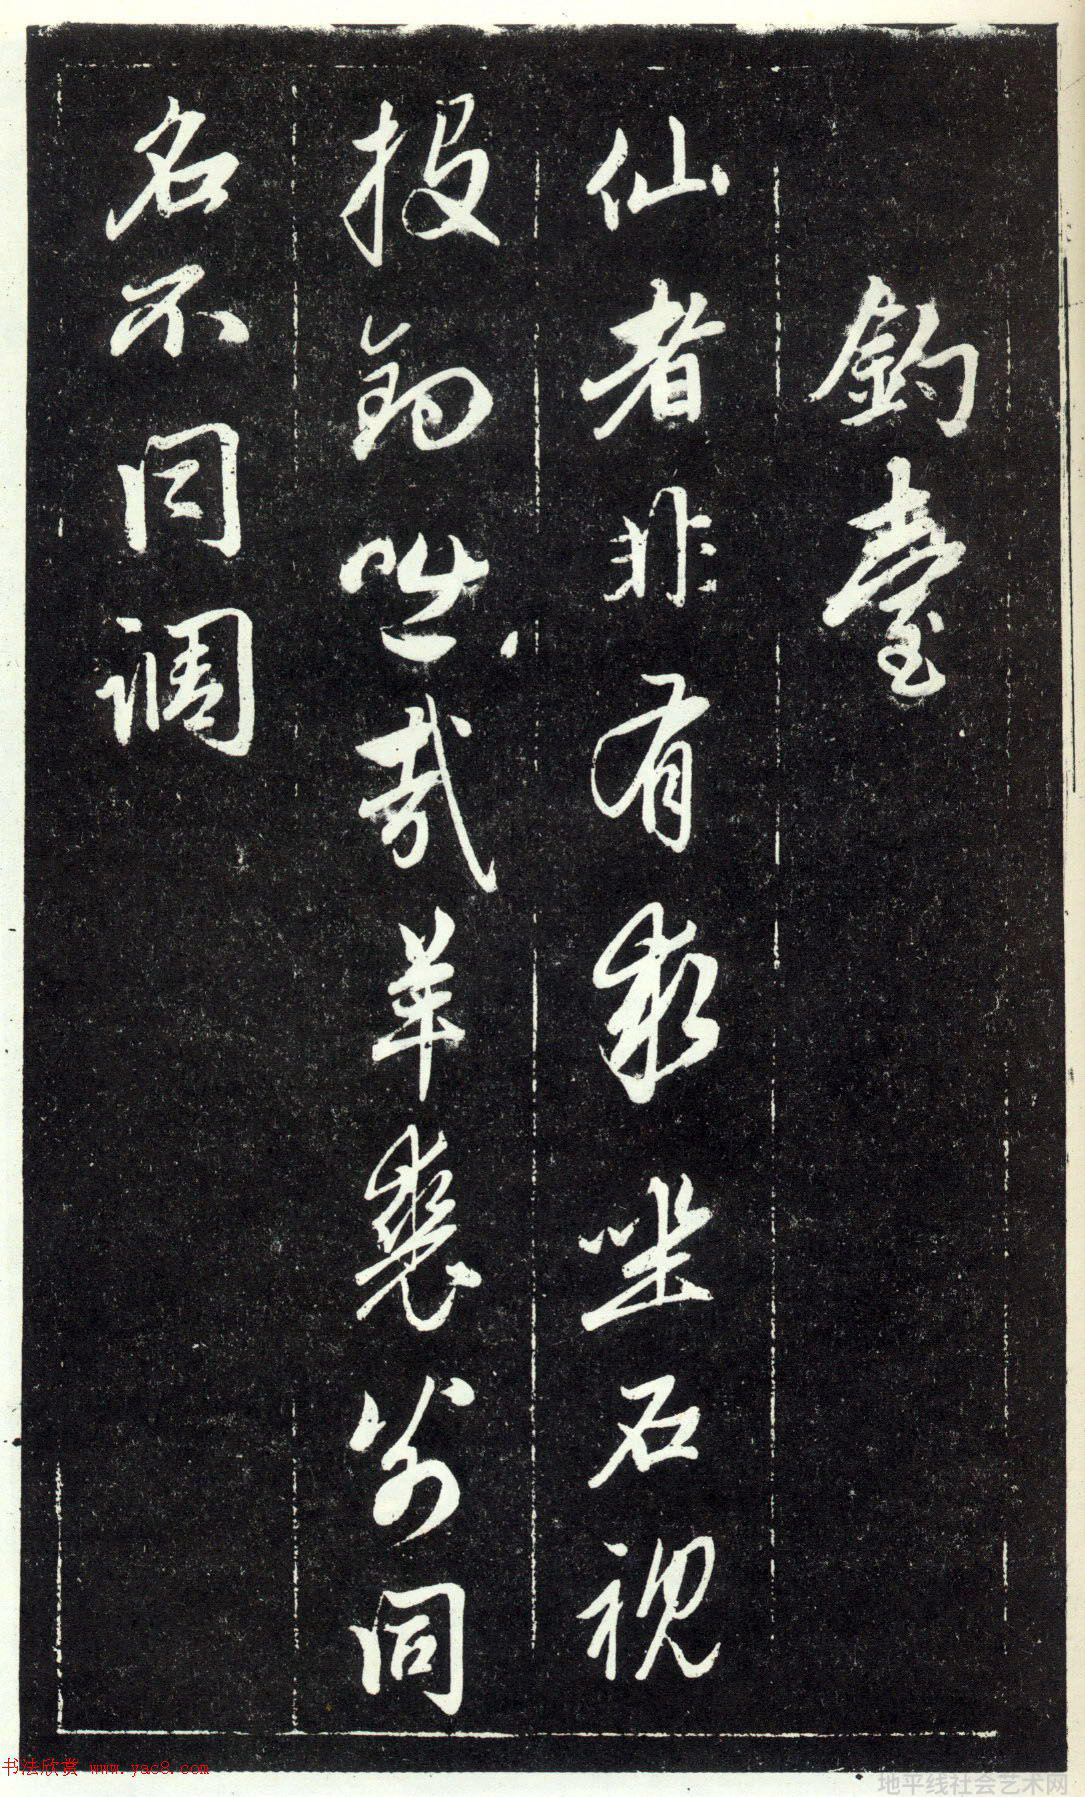 釣臺
仙者非有求坐石視
投釣咄哉羊裘翁同
名不同調
书法欣赏 www.yac8.com
地平线社会艺术网